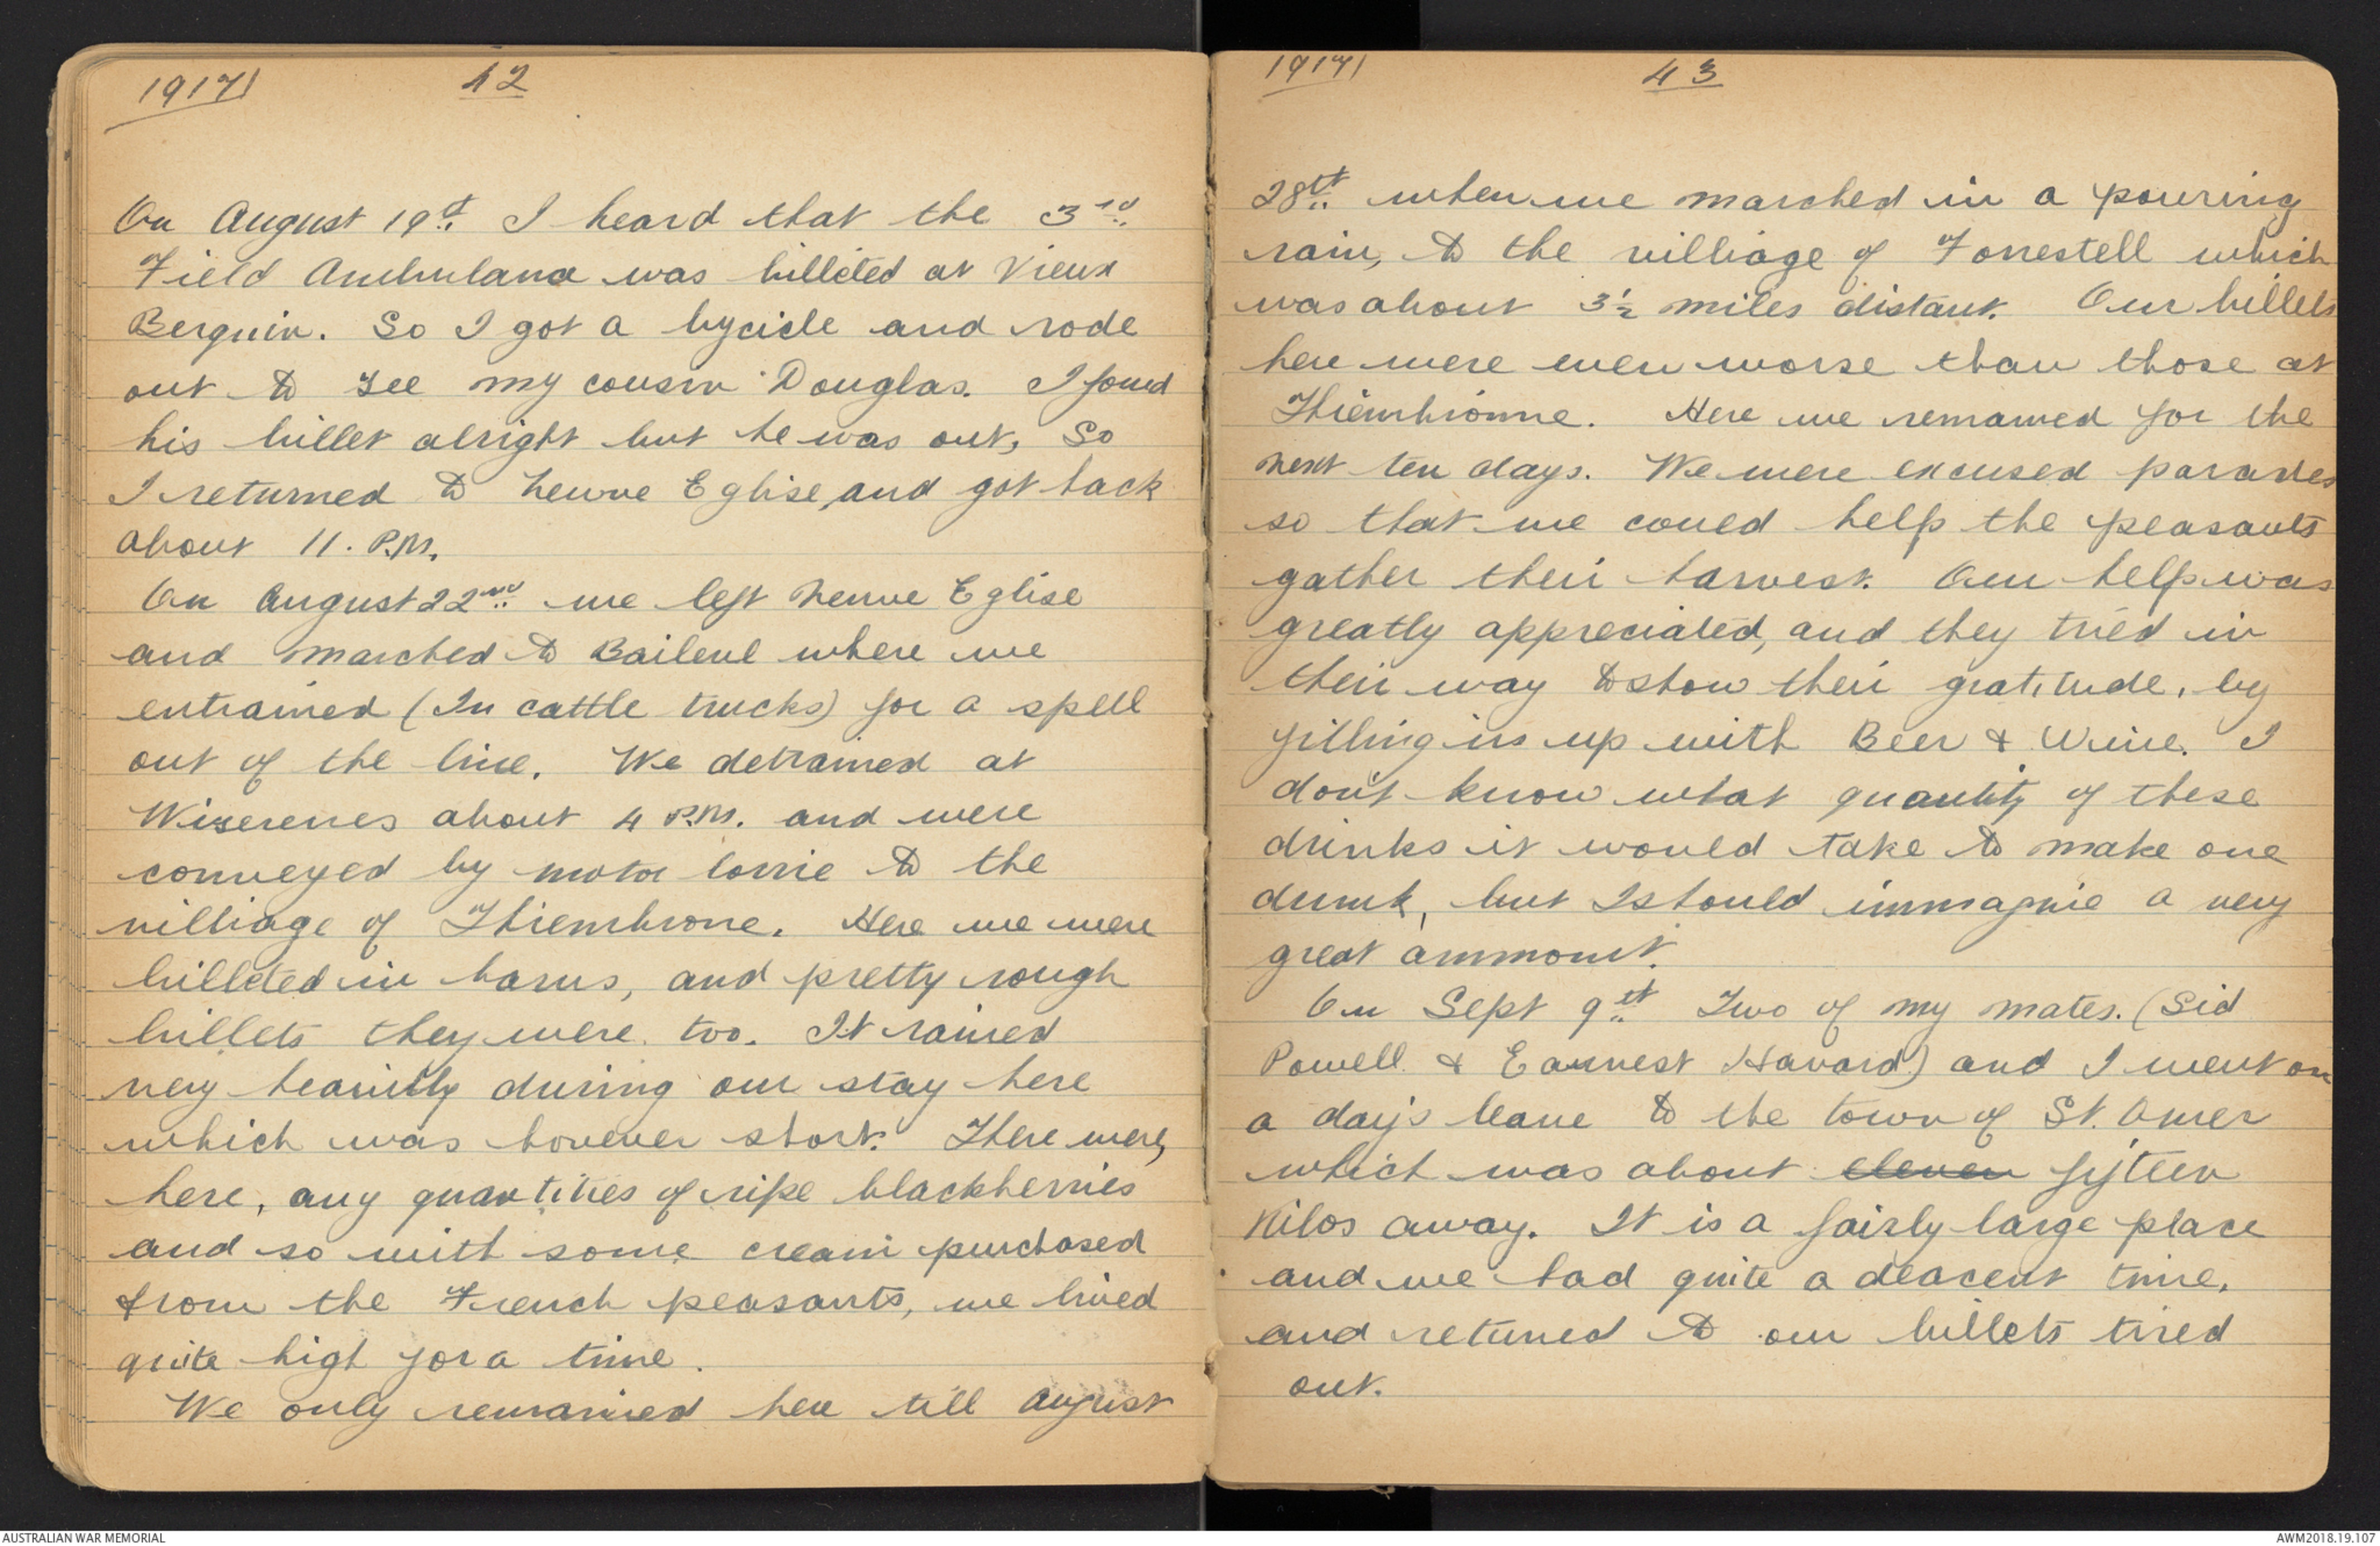 1917/ 42
On August 19th I heard that the 3rd
Field Ambulance was billeted at Vieux
Berquin. So I got a bycicle and rode
out to see my cousin Douglas. I found
his billet alright but he was out, So
I returned to Neuve Eglise, and got back
about 11. P.M.
On August 22nd we left Neuve Eglise
and marched to Baileul where we
entrained (In cattle trucks) for a spell
out of the line. We detrained at
Wizerenes about 4 P.M. and were
conveyed by motor lorrie to the
villiage of Thiembrone. Here we were
billeted in barns, and pretty rough
billets they were too. It rained
very heavily during our stay here
which was hovever short. There were,
here, any quantities of ripe blackberries
and so with some cream purchased
from the French peasants, we lived
quite high for a time.
We only remained here till August
1917/ 43
28th when we marched in a pouring
rain, to the villiage of Forrestell which
was about 3½ miles distant. Our billets
here were even worse than those at
Thiembronne. Here we remained for the
next ten days. We were excused parades
so that we could help the peasants
gather their harvest. Our help was
greatly appreciated, and they tried in
their way to show their gratitude, by
filling us up with Beer & Wine. I
don't know what quantity of these
drinks it would take to make one
drunk, but I should immagnie a very
great ammount.
On Sept 9th Two of my mates. (Sid
Powell & Earnest Havard) and I went on
a day's leave to the town of St. Omer
which was about eleven fifteen
Kilos away. It is a fairly large place
and we had quite a deacent time,
and returned to our billets tired
out.
AUSTRALIAN WAR MEMORIAL AWM2018.19.107